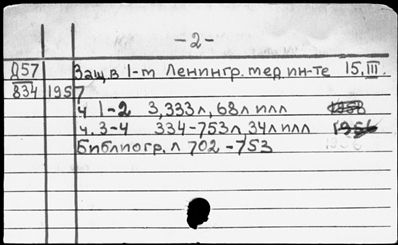 - 2 -
Д57 Защ. в 1-м Ленингр. мед. ин-те 15.III.
834 1957
ч 1-2 3,333 л, 68 л илл
ч. 3-4 334-753 л, 34 л илл 1956
библиогр. л 702-753